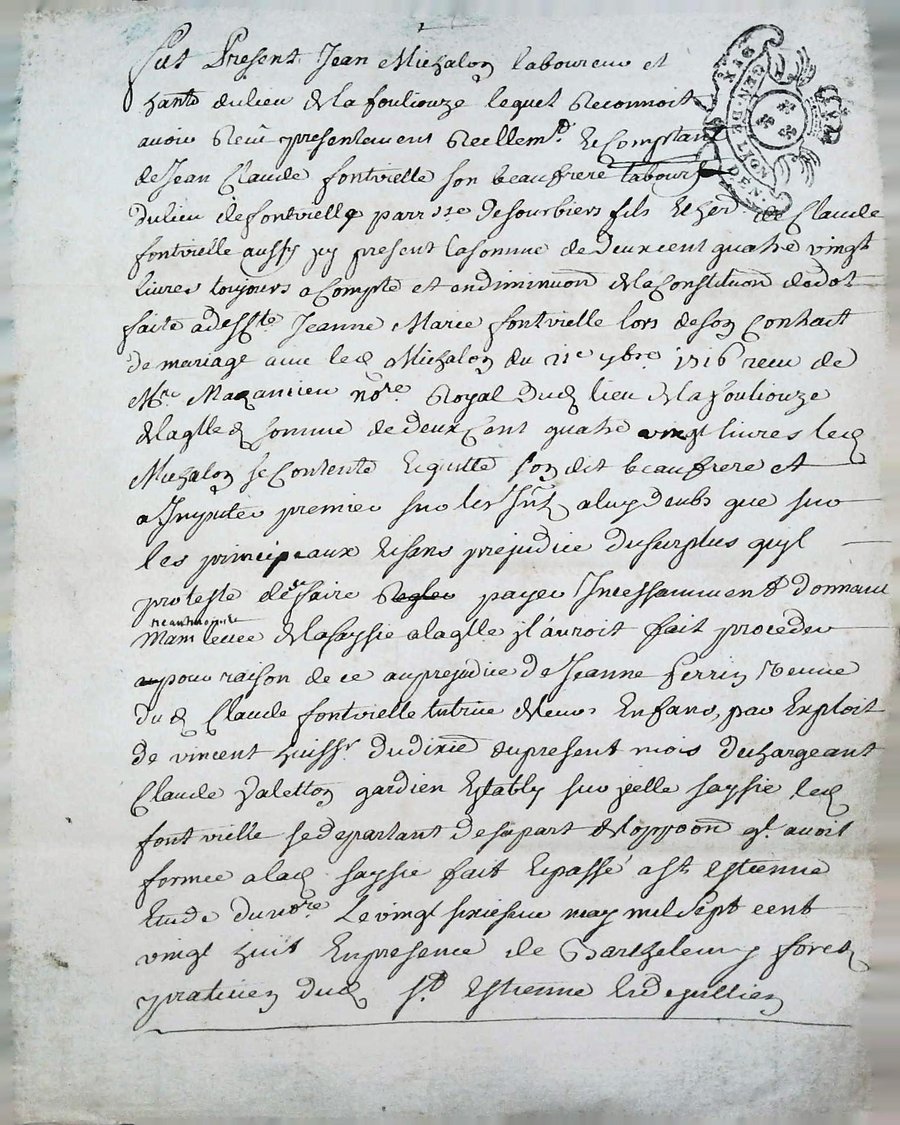 Fut Present Jean Michalon laboureur et
habt du lieu de la fouliouze lequel Reconnoit
avoir Receu presentement Reellemt. Et Comptant
de Jean Claude fontvielle son beaufrere labour
du lieu de fontvielle parrsse de sourbiers fils Et her. de Claude
fontvielle aussy icy present la somme de deux cent quatre vingt
livres toujours a Compte et en diminuon de la Constituon de dot
faite a deffte Jeanne Marie fontvielle lors de son Contrait
de mariage avec led Michalon du 11e 9bre 1716 receu de
Me Mazancieu nore Royal dud lieu de la fouliouze
de laqlle d somme de deux Cent quatre vingt livres led
Michalon se Contente Et quitte son dit beaufrere et
a Imputer premier sur les Intz a luy deubs que sur
les principeaux Et sans prejudice du surplus qu'il
proteste de se faire Regler payer Incessamment & donnant
neantmoins
Main levée de la saysie a laqlle il auroit fait proceder
pour raison de ce au prejudice de Jeanne Perrin veuve
du d Claude fontvielle tutrice de leurs Enfans, par Exploit
de vincent huissr. du dixie du present mois dechargeant
Claude Valetton gardien Estably sur icelle saysie led
fontvielle se departant de sa part de l'oppoon ql. avoit
formée a lad saysie fait Et passé a St Estienne
Etude du nore Le vingt sixieme may mil Sept cent
vingt huit En presence de Barthelemy forest
praticien dud St Estienne Et de jullien
GEN. DE LION
DEN.